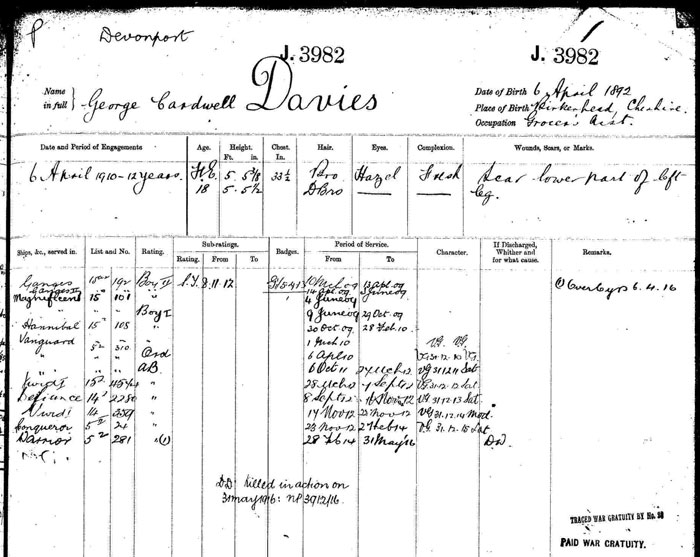 P Devonport
J. 3982 J. 3982
Name in full } George Cardwell Davies
Date of Birth 6 April 1892
Place of Birth Birkenhead, Cheshire
Occupation Grocer's Asst.
Date and Period of Engagements Age. Height. Ft. in. Chest. In. Hair. Eyes. Complexion. Wounds, Scars, or Marks.
6 April 1910 - 12 years. 5. 33½ Bro Hazel Fresh Scar lower part of left
18 5. 5½ DBro leg.
Ships, &c., served in. List and No. Rating. Sub-ratings. Rating. From To Badges. Period of Service. From To Character. If Discharged, Whither and for what cause. Remarks.
Ganges 192 Boy II S.T. 8.11.12 13 Apl. 09 6.4.16
Ganges II 14 Apl. 09 3 June 09
Magnificent 15 101 " 4 June 09
" " Boy I 9 June 09 29 Oct. 09
Hannibal 15 108 " 30 Oct 09 28 Feb. 10
Vanguard 5 310 " 1 Mch 10 VG. VG.
" Ord 6 Apl 10 VG 31.12.10 VG
AB 6 Oct 11 27 Mch 12 VG 31.12.11 Sat
Vivid I 15 " 28 Mch 12 7 Sept 12 VG 31.12.12 Sat.
Defiance 14 2280 " 8 Sept 12 16 Nov. 12 VG 31.12.13 Sat.
Vivid I 14 " 17 Nov 12 22 Nov 12 VG 31.12.14 Mod.
Conqueror 5 24 " 23 Nov 12 27 Feb 14 VG 31.12.15 Sat
5 281 " (1) 28 Feb 14 31 May 16 DD
DD: Killed in action on
31 May 1916: NP 3912/16.
TRACED WAR GRATUITY BY No.
PAID WAR GRATUITY.